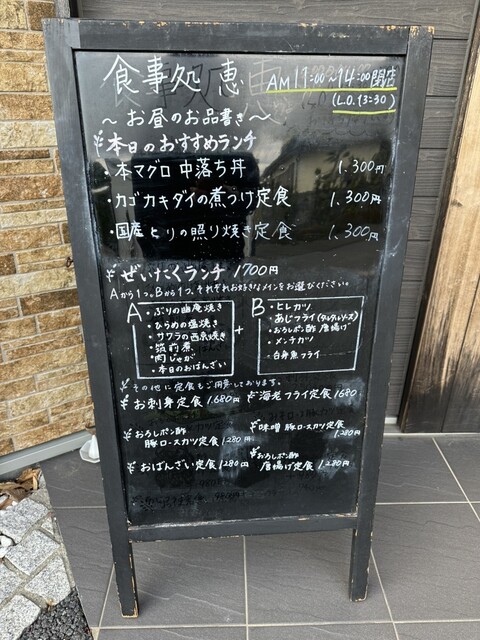 食事処 恵 AM 11:00～14:00 閉店
(L.O. 13:30)
～お昼のお品書き～
本日のおすすめランチ
・本マグロ 中落ち丼 1.300円
・カゴカキダイの煮つけ定食 1.300円
・国産とりの照り焼き定食 1.300円
ぜいたくランチ 1700円
Aから1つ。Bから1つ。それぞれお好きなメインをお選びください。
A
・ぶりの幽庵焼き
・ひらめの塩焼き
・サワラの西京焼き
・筑前煮
・肉じゃが
・本日のおばんざい
+
B
・ヒレカツ
・あじフライ(タルタルソース)
・おろしポン酢 唐揚げ
・メンチカツ
・白身魚フライ
その他に定食もご用意しております。
お刺身定食 1.680円
海老フライ定食 1.680
おろしポン酢
豚ロースカツ定食 1.280円
味噌 豚ロースカツ定食
1.280円
おばんざい定食 1.280円
おろしポン酢
唐揚げ定食 1.280円